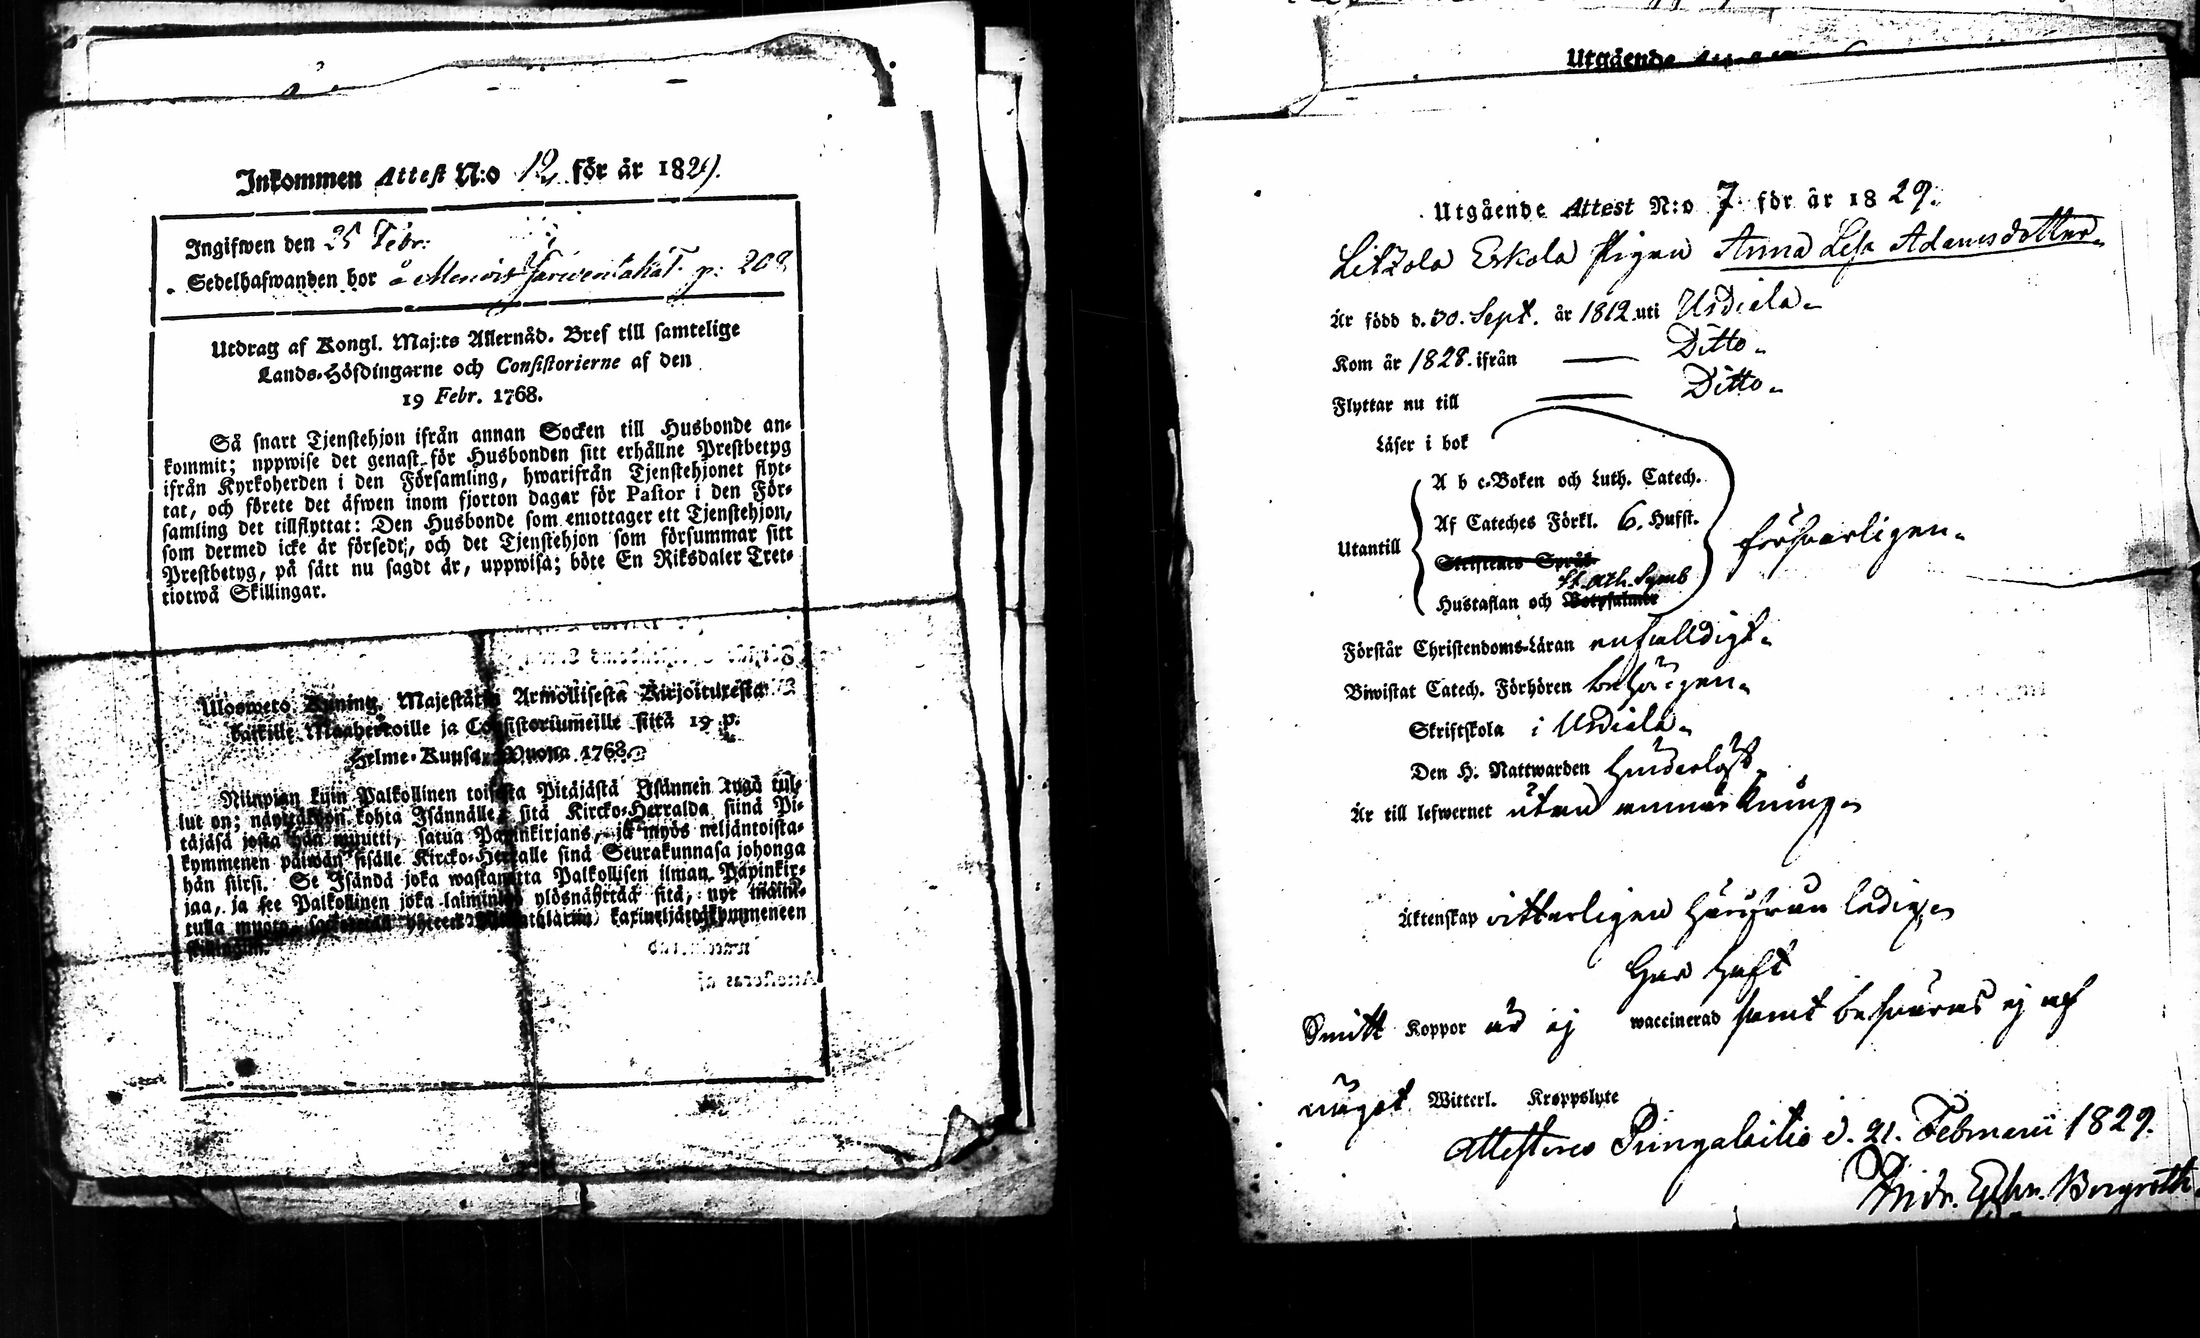 Inkommen Attest N:o 12 för år 1829.
Ingifwen den 25 Febr:
Sedelhafwanden bor å p: 208
Utdrag af Kongl. Maj:ts Allernåd. Bref till samtelige
Lands-Höfdingarne och Consistorierne af den
19 Febr. 1768.
Så snart Tjenstehjon ifrån annan Socken till Husbonde an-
kommit; uppwise det genast för Husbonden sitt erhållne Prestbetyg
ifrån Kyrkoherden i den Församling, hwarifrån Tjenstehjonet flyt-
tat, och förete det äfwen inom fjorton dagar för Pastor i den För-
samling det tillflyttat: Den Husbonde som emottager ett Tjenstehjon,
som dermed icke är försedt, och det Tjenstehjon som försummar sitt
Prestbetyg, på sätt nu sagdt är, uppwisa; böte En Riksdaler Tret-
tiotwå Skillingar.
Ulosweto Kuning. Majestätin Armollisesta Kirjoituxesta
kaikille Maaherroille ja Consistoriumeille siitä 19 p.
Helme-Kuusa Wuona 1768.
Niinpian kuin Palkollinen toisesta Pitäjästä Isännen tygö tul-
lut on; näyttäkön kohta Isännälle sitä Kircko-Herralda siinä Pi-
täjäsä josta hän muutti, saatua Papinkirjans, ja myös neljäntoista-
kymmenen päiwän sisälle Kircko-Herralle siinä Seurakunnasa johonga
hän siirsi. Se Isändä joka wastanotta Palkollisen ilman Papinkir-
jaa, ja see Palkollinen joka laiminlyö ylösnäyttää sitä, nyt mainit-
tulla muota, kaxineljättäkymmeneen
Utgående
Utgående Attest N:o 7 för år 1829.
Litzola Eskola Pigan Anna Lisa Adamsdotter
Är född d. 30. Sept. år 1812 uti Urdiala
Kom år 1828. ifrån — Ditto
Flyttar nu till — Ditto
Läser i bok
A b c-Boken och Luth. Catech.
Af Cateches Förkl. 6. Hufst.
Utantill försvarligen
Skriftenes Språk
St. Ath. Symb
Hustaflan och Botpsalmer
Förstår Christendoms-Läran enfalldigt
Biwistat Catech. Förhören behörigen
Skriftskola i Urdiala
Den H. Nattwarden hinderlöst
Är till lefwernet utan anmärkning
Äktenskap vitterligen härifrån ledig
Har haft
Smitt Koppor är ej waccinerad samt besväras ej af
något Witterl. Kroppslyte
Attesteras Pungalaitio d. 21. Februarii 1829.
Andr. Bergroth